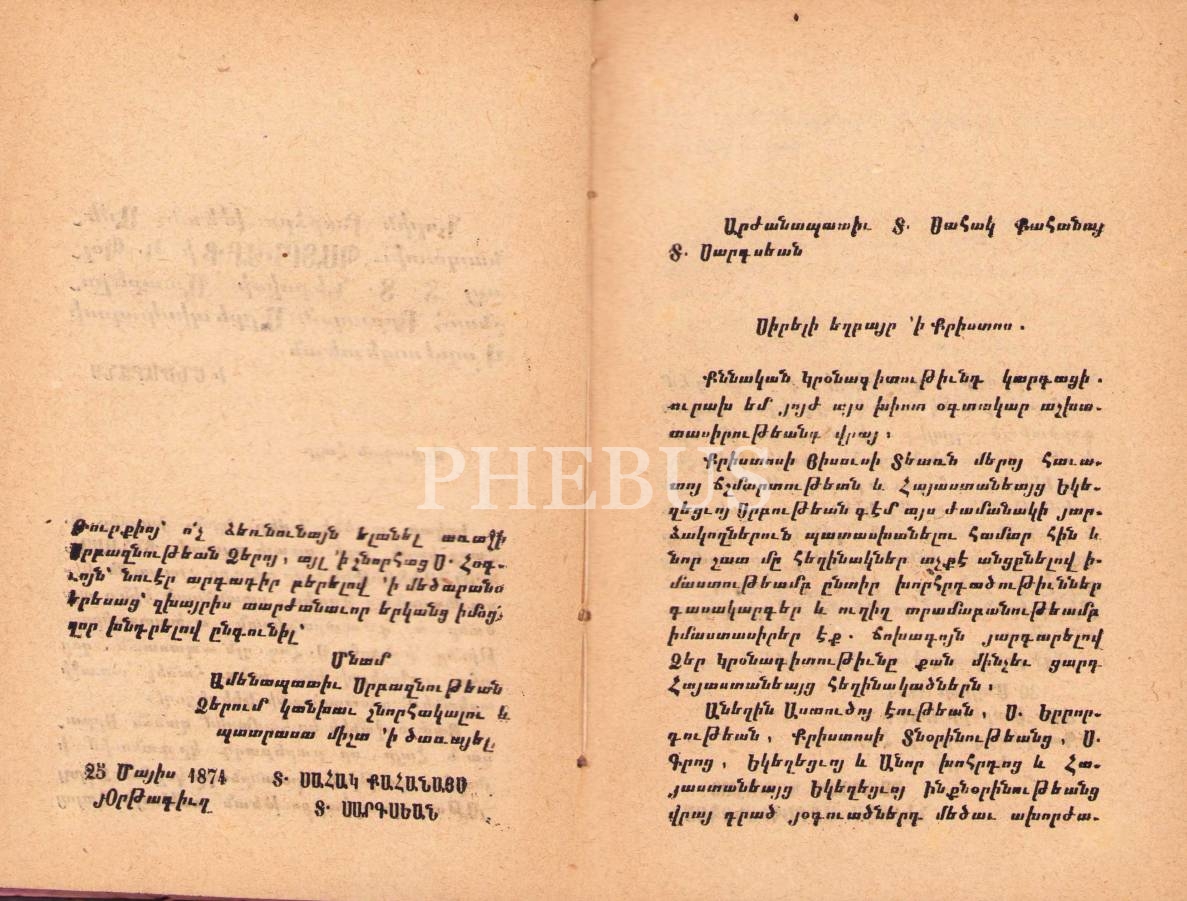 Թուրքիոյ՝ ո՛չ ձեռնունայն ելանել առաջի
Սրբազնութեան Ձերոյ, այլ ՚ի շնորհաց Ս. Հոգ-
ւոյն՝ նուէր արդագիր բերելով ՚ի մեծարանս
երեսաց՝ զխայրիս տարժանաւոր երկանց իմոց՝
զոր խնդրելով ընդունիլ՝
Մնամ
Ամենապատիւ Սրբազնութեան
Ձերում կանխաւ շնորհակալու և
պատրաստ միշտ ՚ի ծառայել
25 Մայիս 1874 Տ. ՍԱՀԱԿ ՔԱՀԱՆԱՅՍ
յՕրթագիւղ Տ. ՍԱՐԳՍԵԱՆ
Արժանապատիւ Տ. Սահակ Քահանայ
Տ. Սարգսեան
Սիրելի եղբայր ՚ի Քրիստոս.
Քննական Կրօնագիտութիւնդ կարդացի.
ուրախ եմ յոյժ այս խիստ օգտակար աշխա-
տասիրութեանդ վրայ։
Քրիստոսի Յիսուսի Տեառն մերոյ հաւա-
տոյ ճշմարտութեան և Հայաստանեայց Եկե-
ղեցւոյ Սրբութեան դէմ այս ժամանակի յար-
ձակողներուն պատասխանելու համար հին և
նոր շատ մը հեղինակներ աչքէ անցընելով ի-
մաստութեամբ ընտիր խորհրդածութիւններ
դասակարգեր և ուղիղ տրամաբանութեամբ
իմաստասիրեր էք. ճոխագոյն յարդարելով
Ձեր Կրօնագիտութիւնը քան մինչեւ ցարդ
Հայաստանեայց հեղինակածներն։
Անեղին Աստուծոյ էութեան, Ս. Երրոր-
դութեան, Քրիստոսի Տնօրինութեանց, Ս.
Գրոց, Եկեղեցւոյ և Անոր խոհրդոց և Հա-
յաստանեայց Եկեղեցւոյ Ինքնօրինութեանց
վրայ գրած յօդուածներդ մեծաւ ախորժա-
PHEBUS